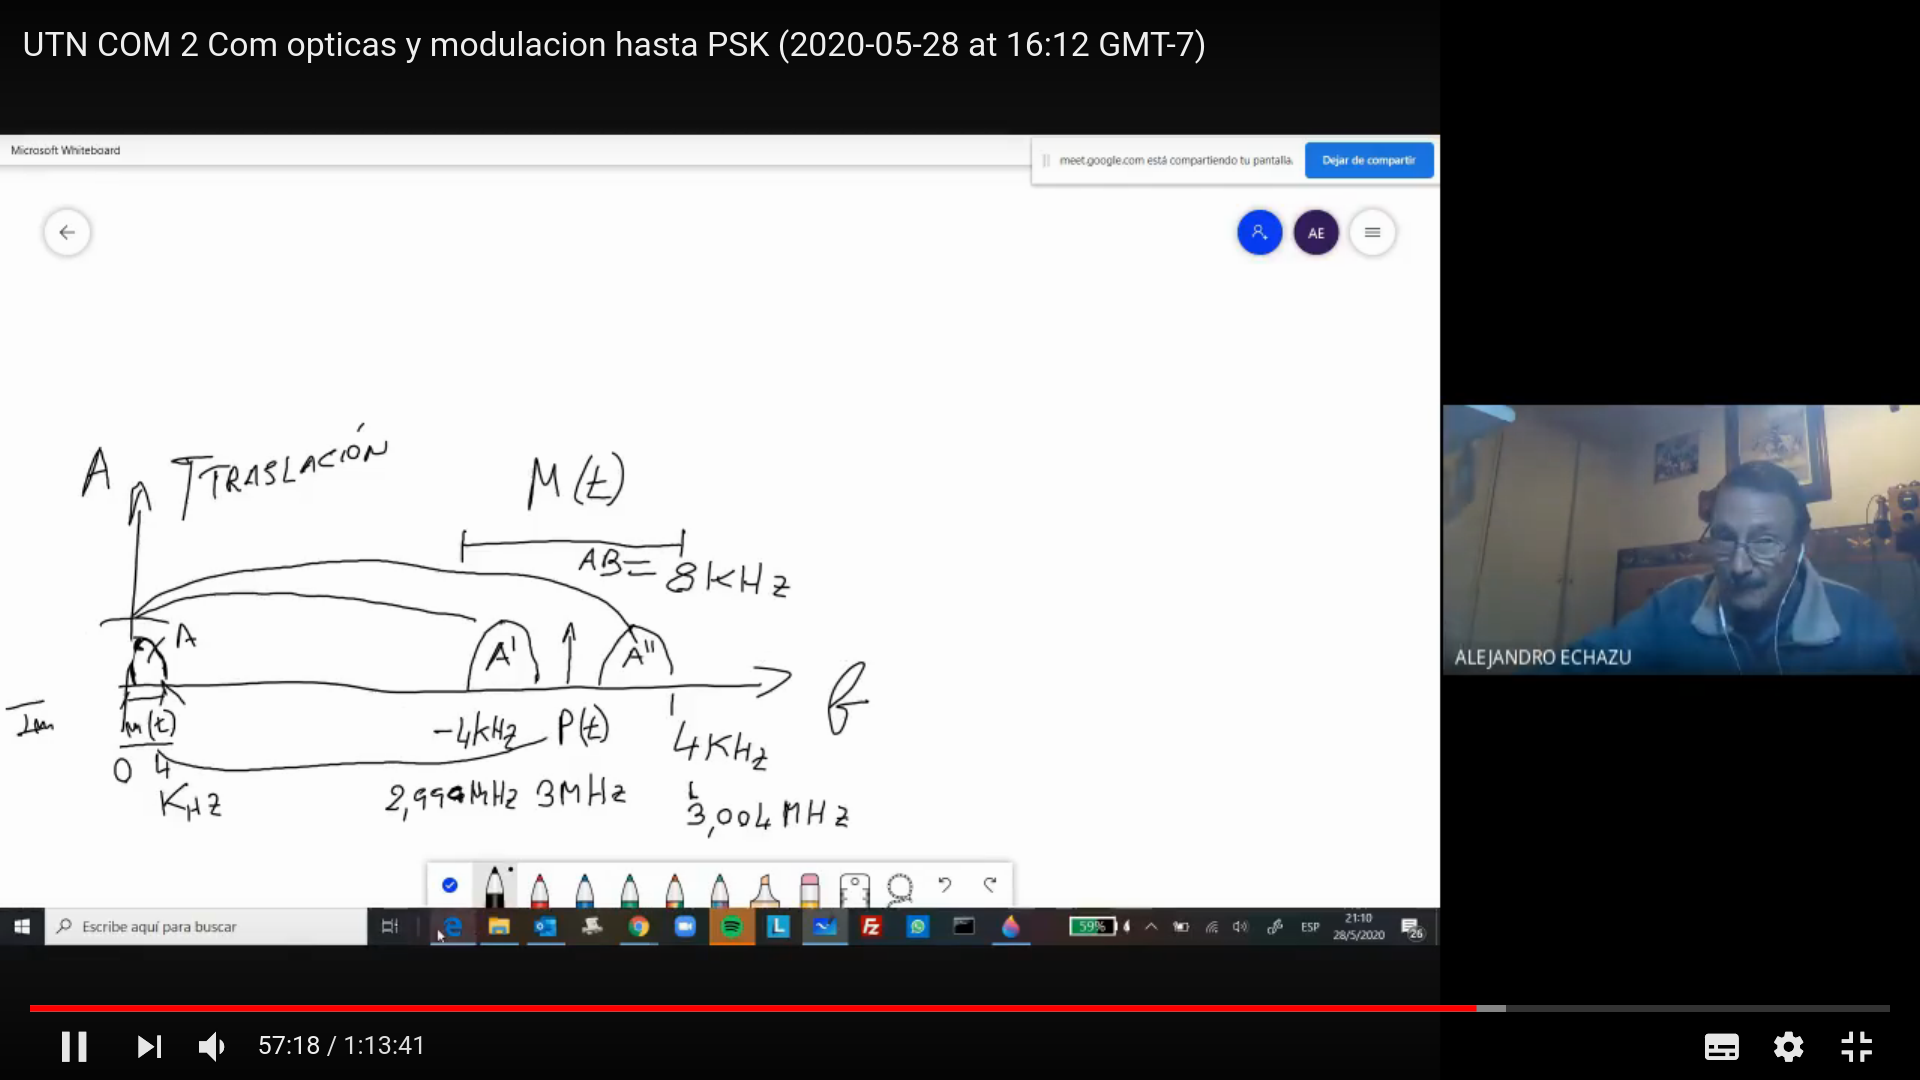 UTN COM 2 Com opticas y modulacion hasta PSK (2020-05-28 at 16:12 GMT-7)
Microsoft Whiteboard
meet.google.com está compartiendo tu pantalla.
Dejar de compartir
AE
A
TRASLACIÓN
M(t)
AB= 8KHz
A
A'
A''
f
m(t)
-4KHz
P(t)
4KHz
0
4
KHz
2,999MHz
3MHz
3,004MHz
ALEJANDRO ECHAZU
Escribe aquí para buscar
L
Fz
59%
ESP
21:10
28/5/2020
26
57:18 / 1:13:41